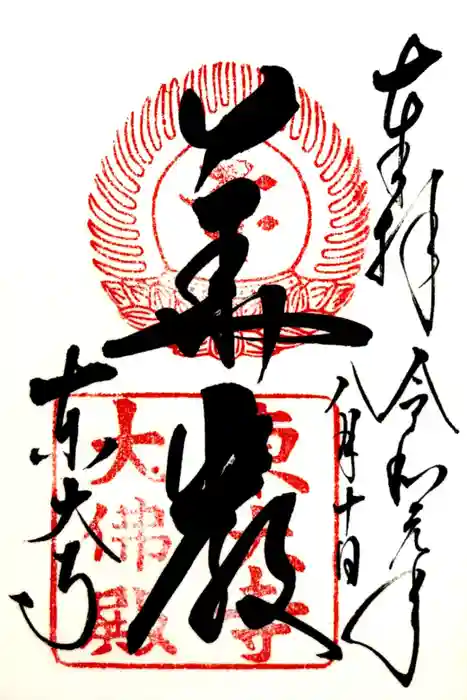 奉拝
令和元年
八月十日
華厳
東大寺
大佛殿
東大寺